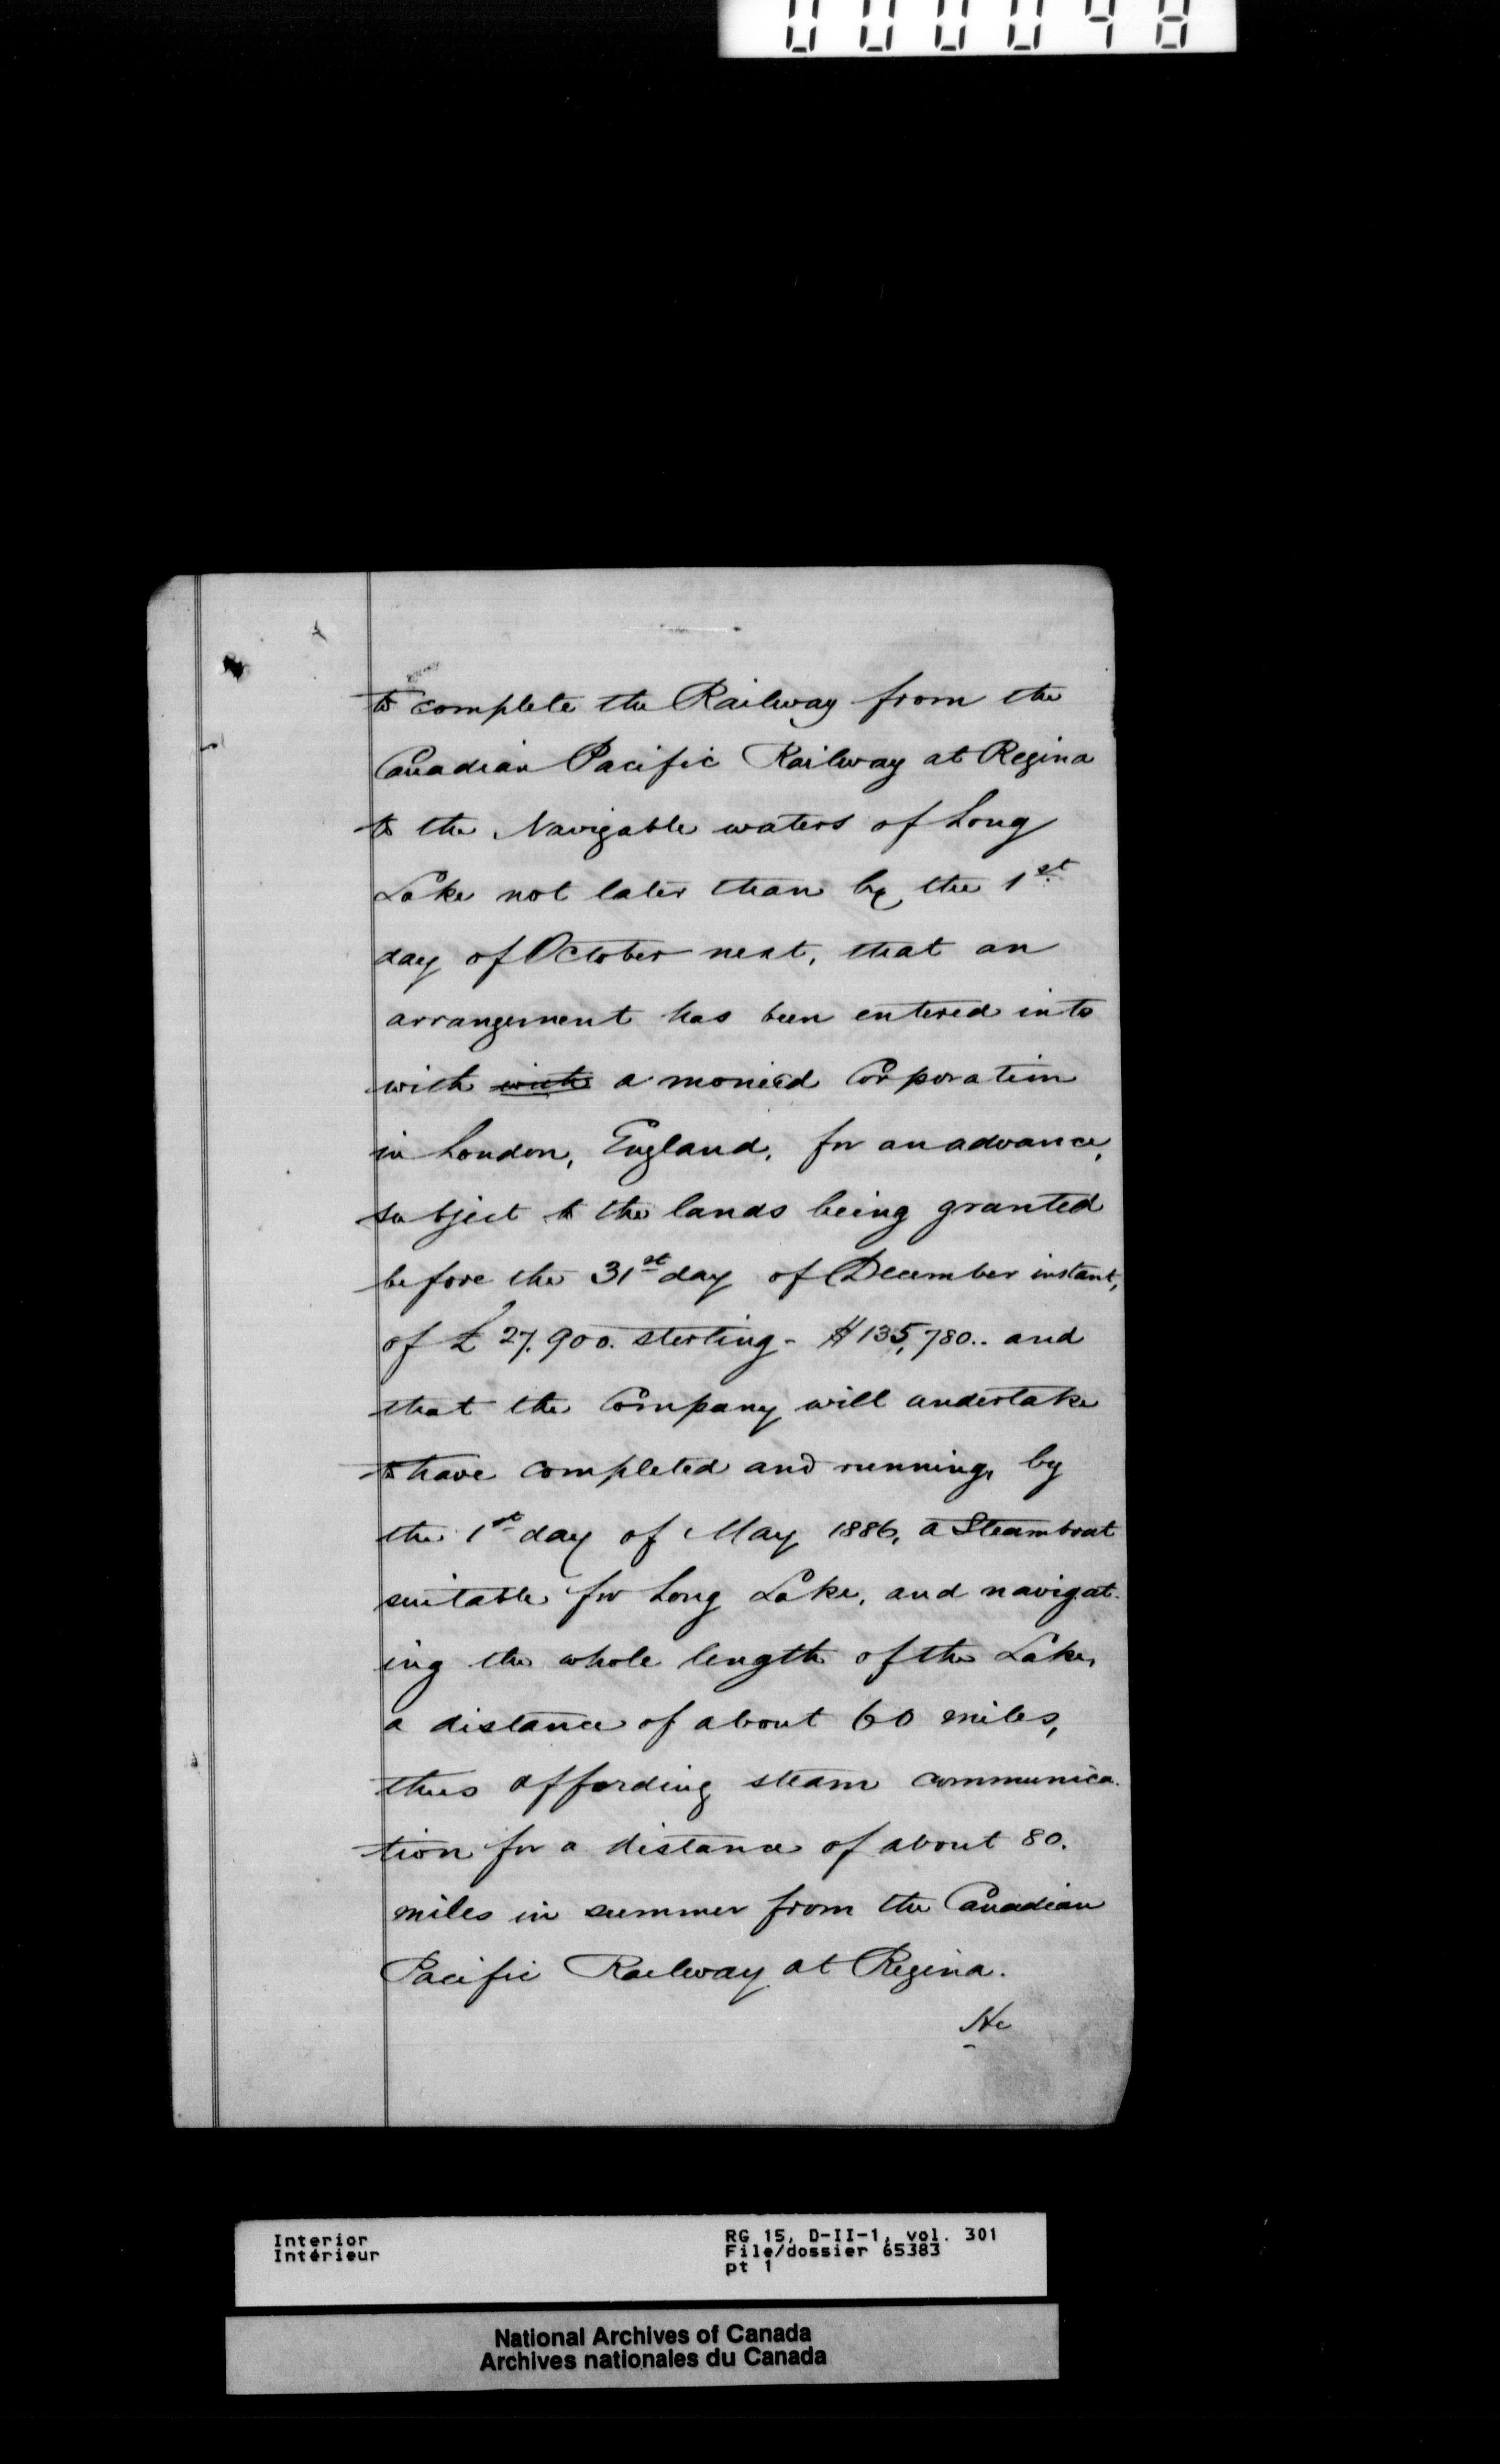 000048
to complete the Railway from the
Canadian Pacific Railway at Regina
to the Navigable waters of Long
Lake not later than by the 1st
day of October next, that an
arrangement has been entered into
with with a monied Corporation
in London, England, for an advance,
subject to the lands being granted
before the 31st day of December instant,
of £27,900. sterling - $135,780.. and
that the Company will undertake
to have completed and running, by
the 1st day of May 1886, a Steamboat
suitable for Long Lake, and navigat-
ing the whole length of the Lake,
a distance of about 60 miles,
thus affording steam communica-
tion for a distance of about 80.
miles in summer from the Canadian
Pacific Railway at Regina.
He
Interior
Intérieur
RG 15, D-II-1, vol. 301
File/dossier 65383
pt 1
National Archives of Canada
Archives nationales du Canada